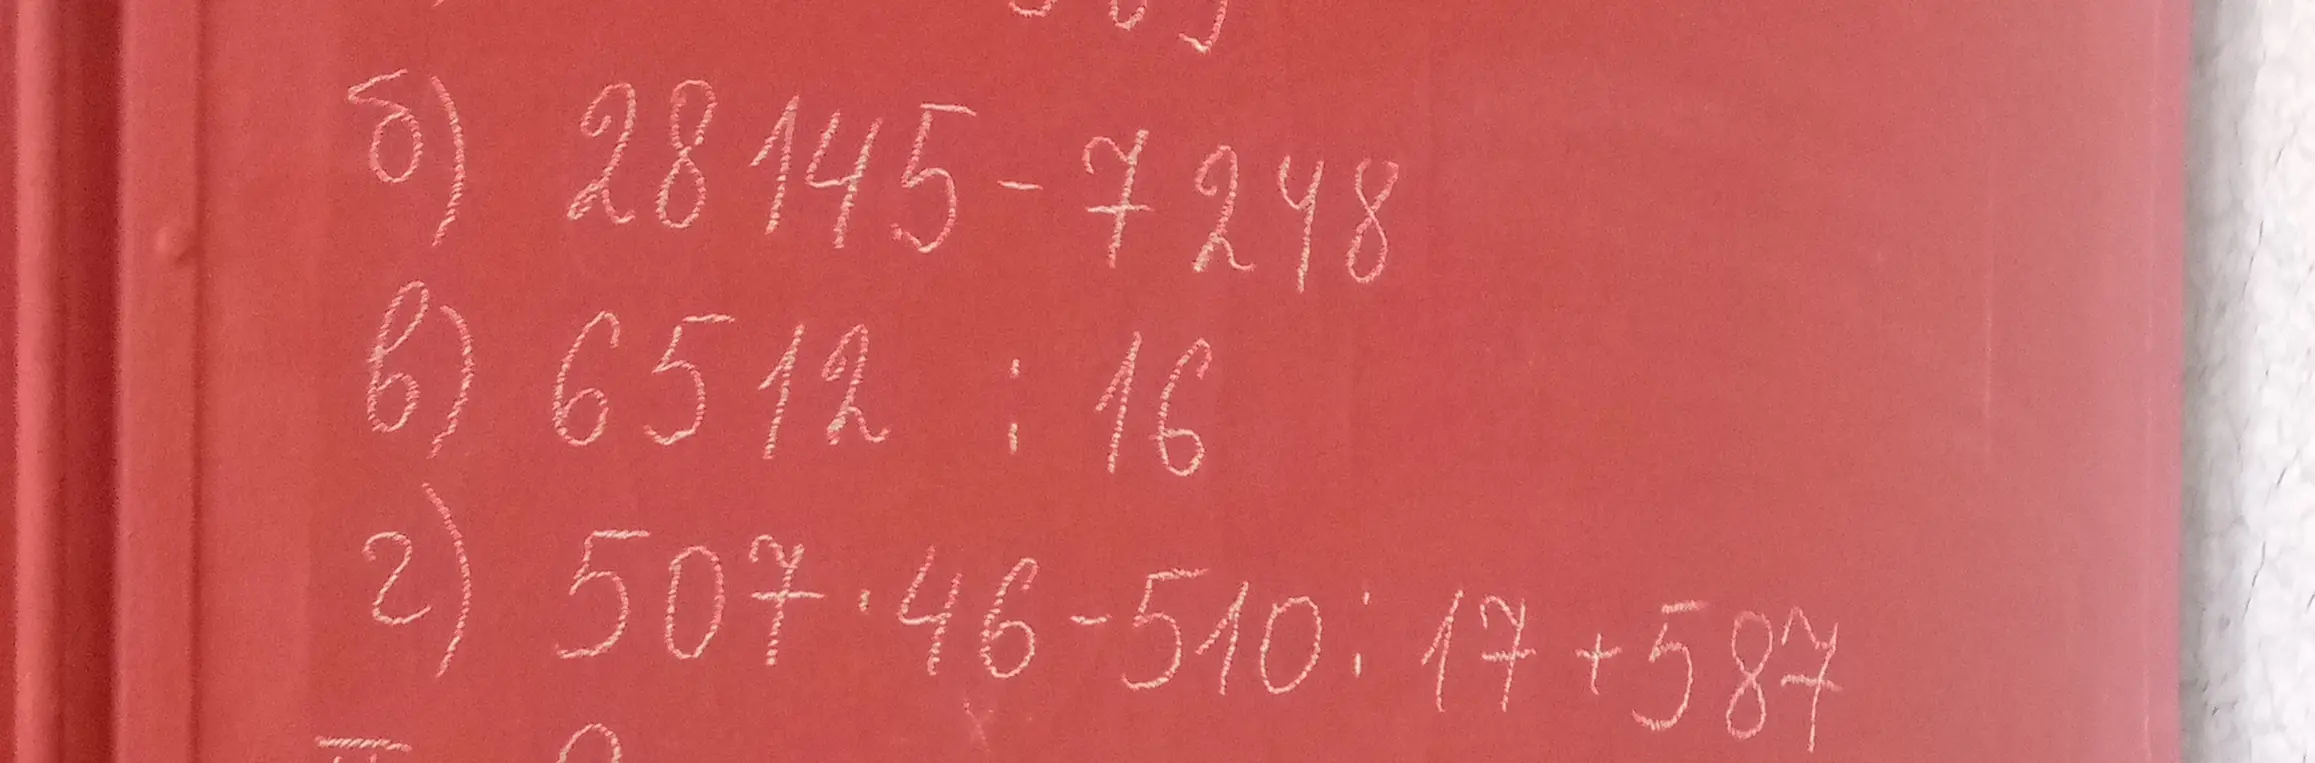 б) 28145 - 7248
в) 6512 : 16
г) 507 · 46 - 510 : 17 + 587